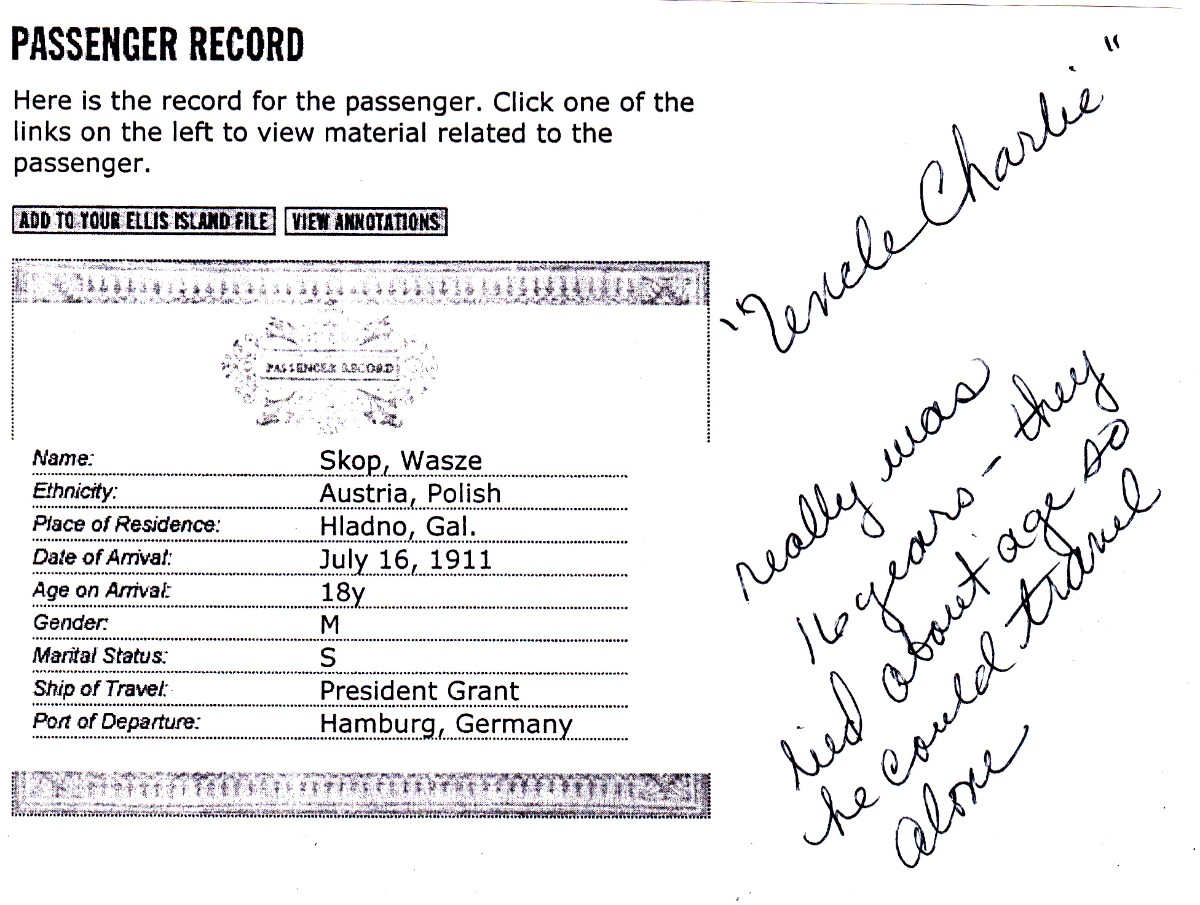 PASSENGER RECORD
Here is the record for the passenger. Click one of the
links on the left to view material related to the
passenger.
ADD TO YOUR ELLIS ISLAND FILE VIEW ANNOTATIONS
PASSENGER RECORD
Name: Skop, Wasze
Ethnicity: Austria, Polish
Place of Residence: Hladno, Gal.
Date of Arrival: July 16, 1911
Age on Arrival: 18y
Gender: M
Marital Status: S
Ship of Travel: President Grant
Port of Departure: Hamburg, Germany
"Uncle Charlie"
really was
16 years - they
lied about age so
he could travel
alone